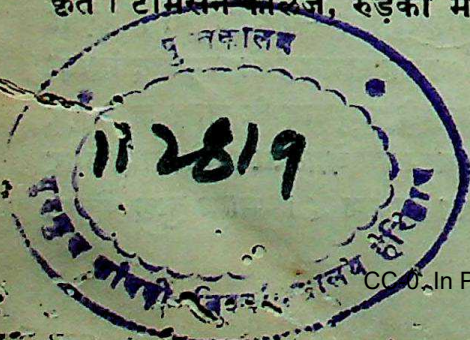 कृत । टामसन कालेज, रुड़की
पुस्तकालय
112819
गुरुकुल कांगड़ी विश्वविद्यालय हरिद्वार
CC-0. In